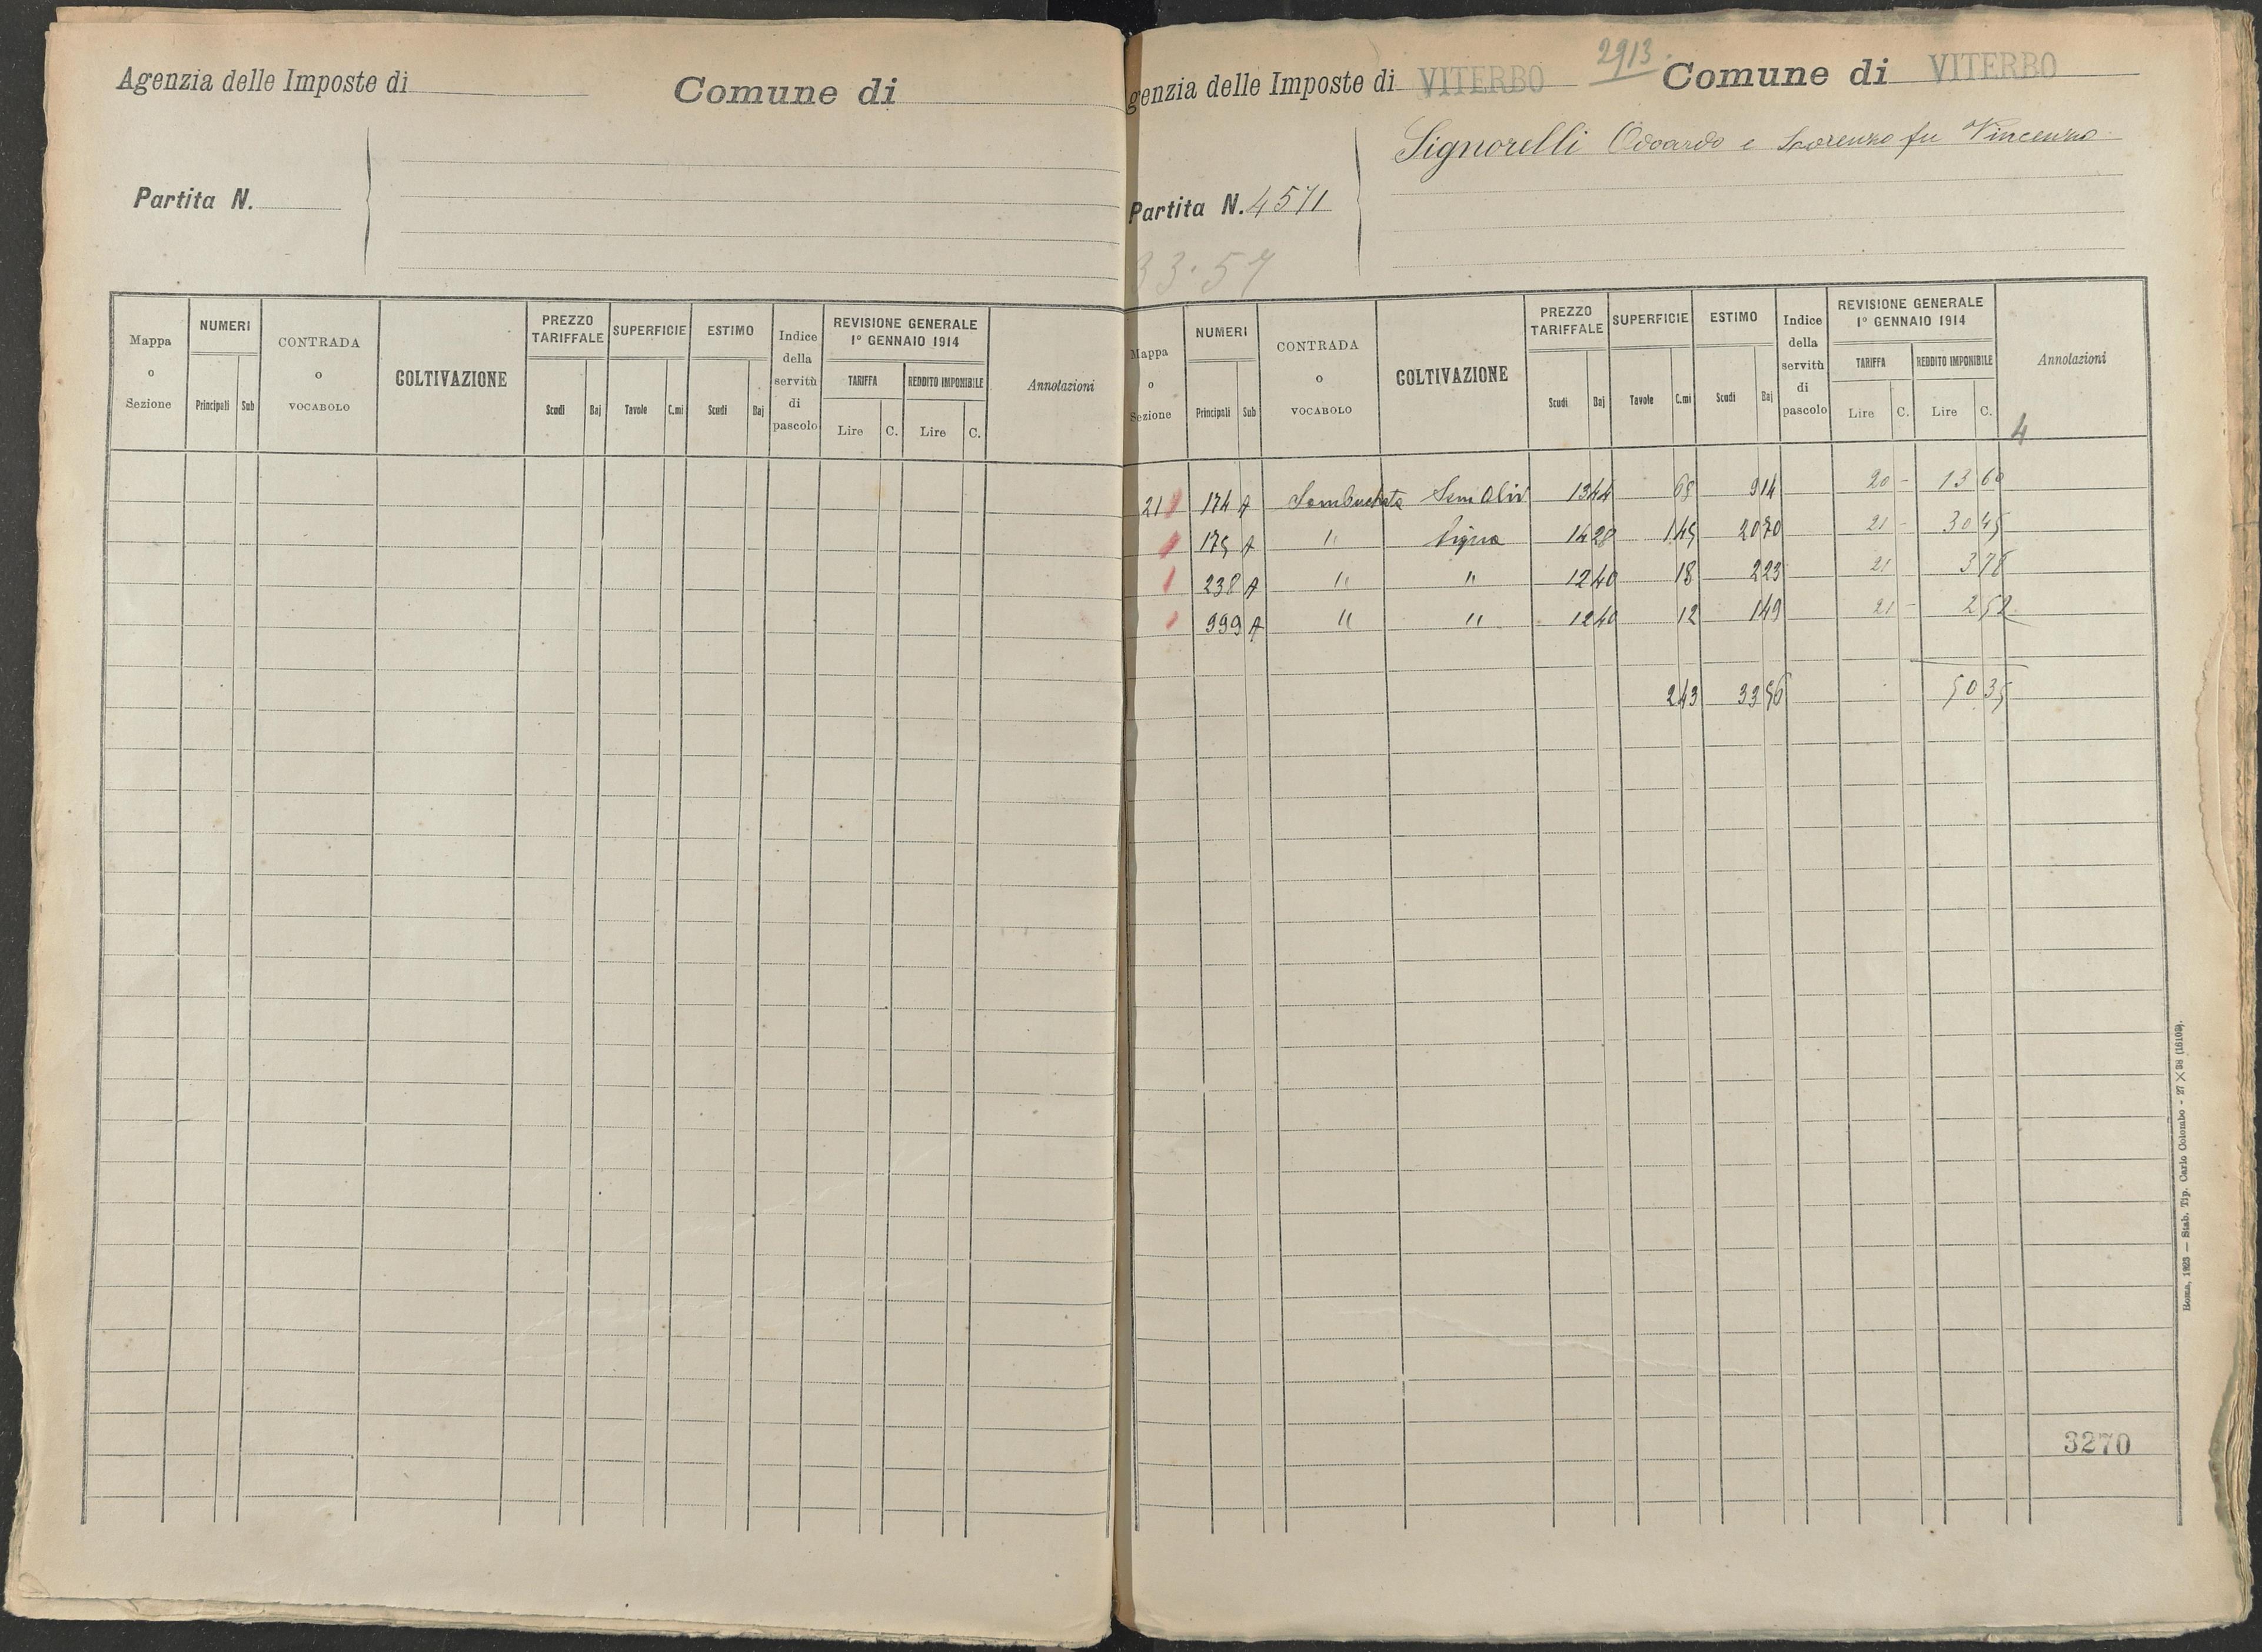 Agenzia delle Imposte di
Comune di
Partita N.
Mappa o Sezione | NUMERI Principali Sub | CONTRADA o VOCABOLO | COLTIVAZIONE | PREZZO TARIFFALE Scudi Baj | SUPERFICIE Tavole C.mi | ESTIMO Scudi Baj | Indice della servitù di pascolo | REVISIONE GENERALE 1° GENNAIO 1914 TARIFFA Lire C. REDDITO IMPONIBILE Lire C. | Annotazioni
2913.
genzia delle Imposte di VITERBO Comune di VITERBO
Signorelli Odoardo e Lorenzo fu Vincenzo
Partita N. 4571
33.57
Mappa o Sezione | NUMERI Principali Sub | CONTRADA o VOCABOLO | COLTIVAZIONE | PREZZO TARIFFALE Scudi Baj | SUPERFICIE Tavole C.mi | ESTIMO Scudi Baj | Indice della servitù di pascolo | REVISIONE GENERALE 1° GENNAIO 1914 TARIFFA Lire C. REDDITO IMPONIBILE Lire C. | Annotazioni
4
21 174 A Sem Oliv 13 44 68 9 14 20 - 13 60
175 A " Vigna 14 28 1 45 20 70 21 - 30 45
238 A " " 12 40 18 2 23 21 3 78
999 A " " 12 40 12 1 49 21 - 2 52
2 43 33 56 50 35
3270
Roma, 1923 — Stab. Tip. Carlo Colombo - 27 × 38 (16105).